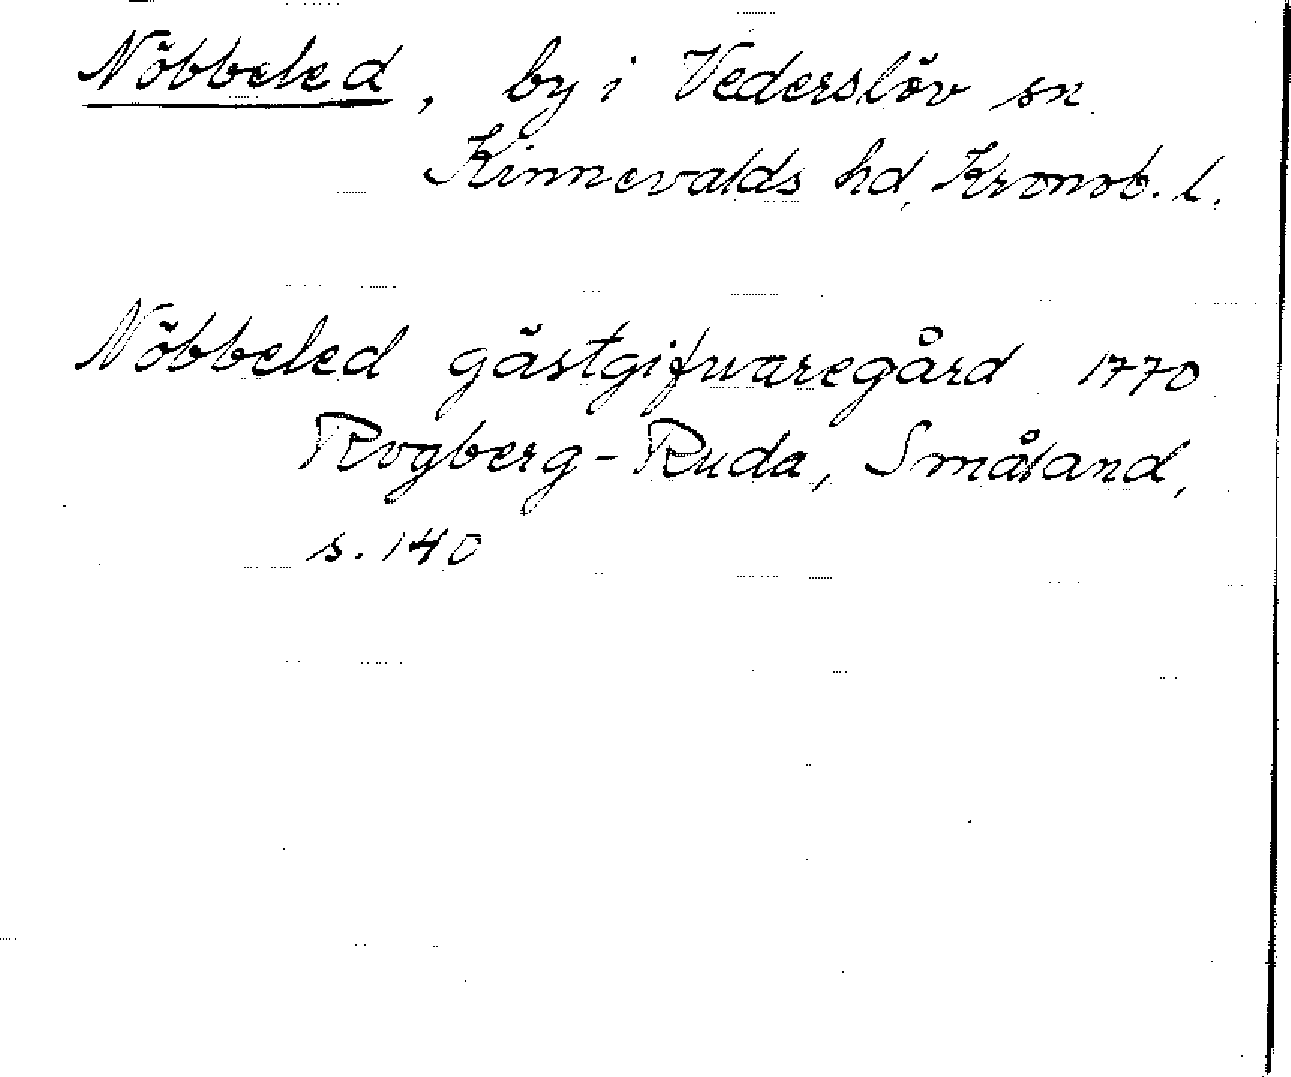 Nöbbeled, by i Vederslöv sn.
Kinnevalds hd, Kronob. l.
Nöbbeled gästgifwaregård 1770
Rogberg-Ruda, Småland,
s. 140